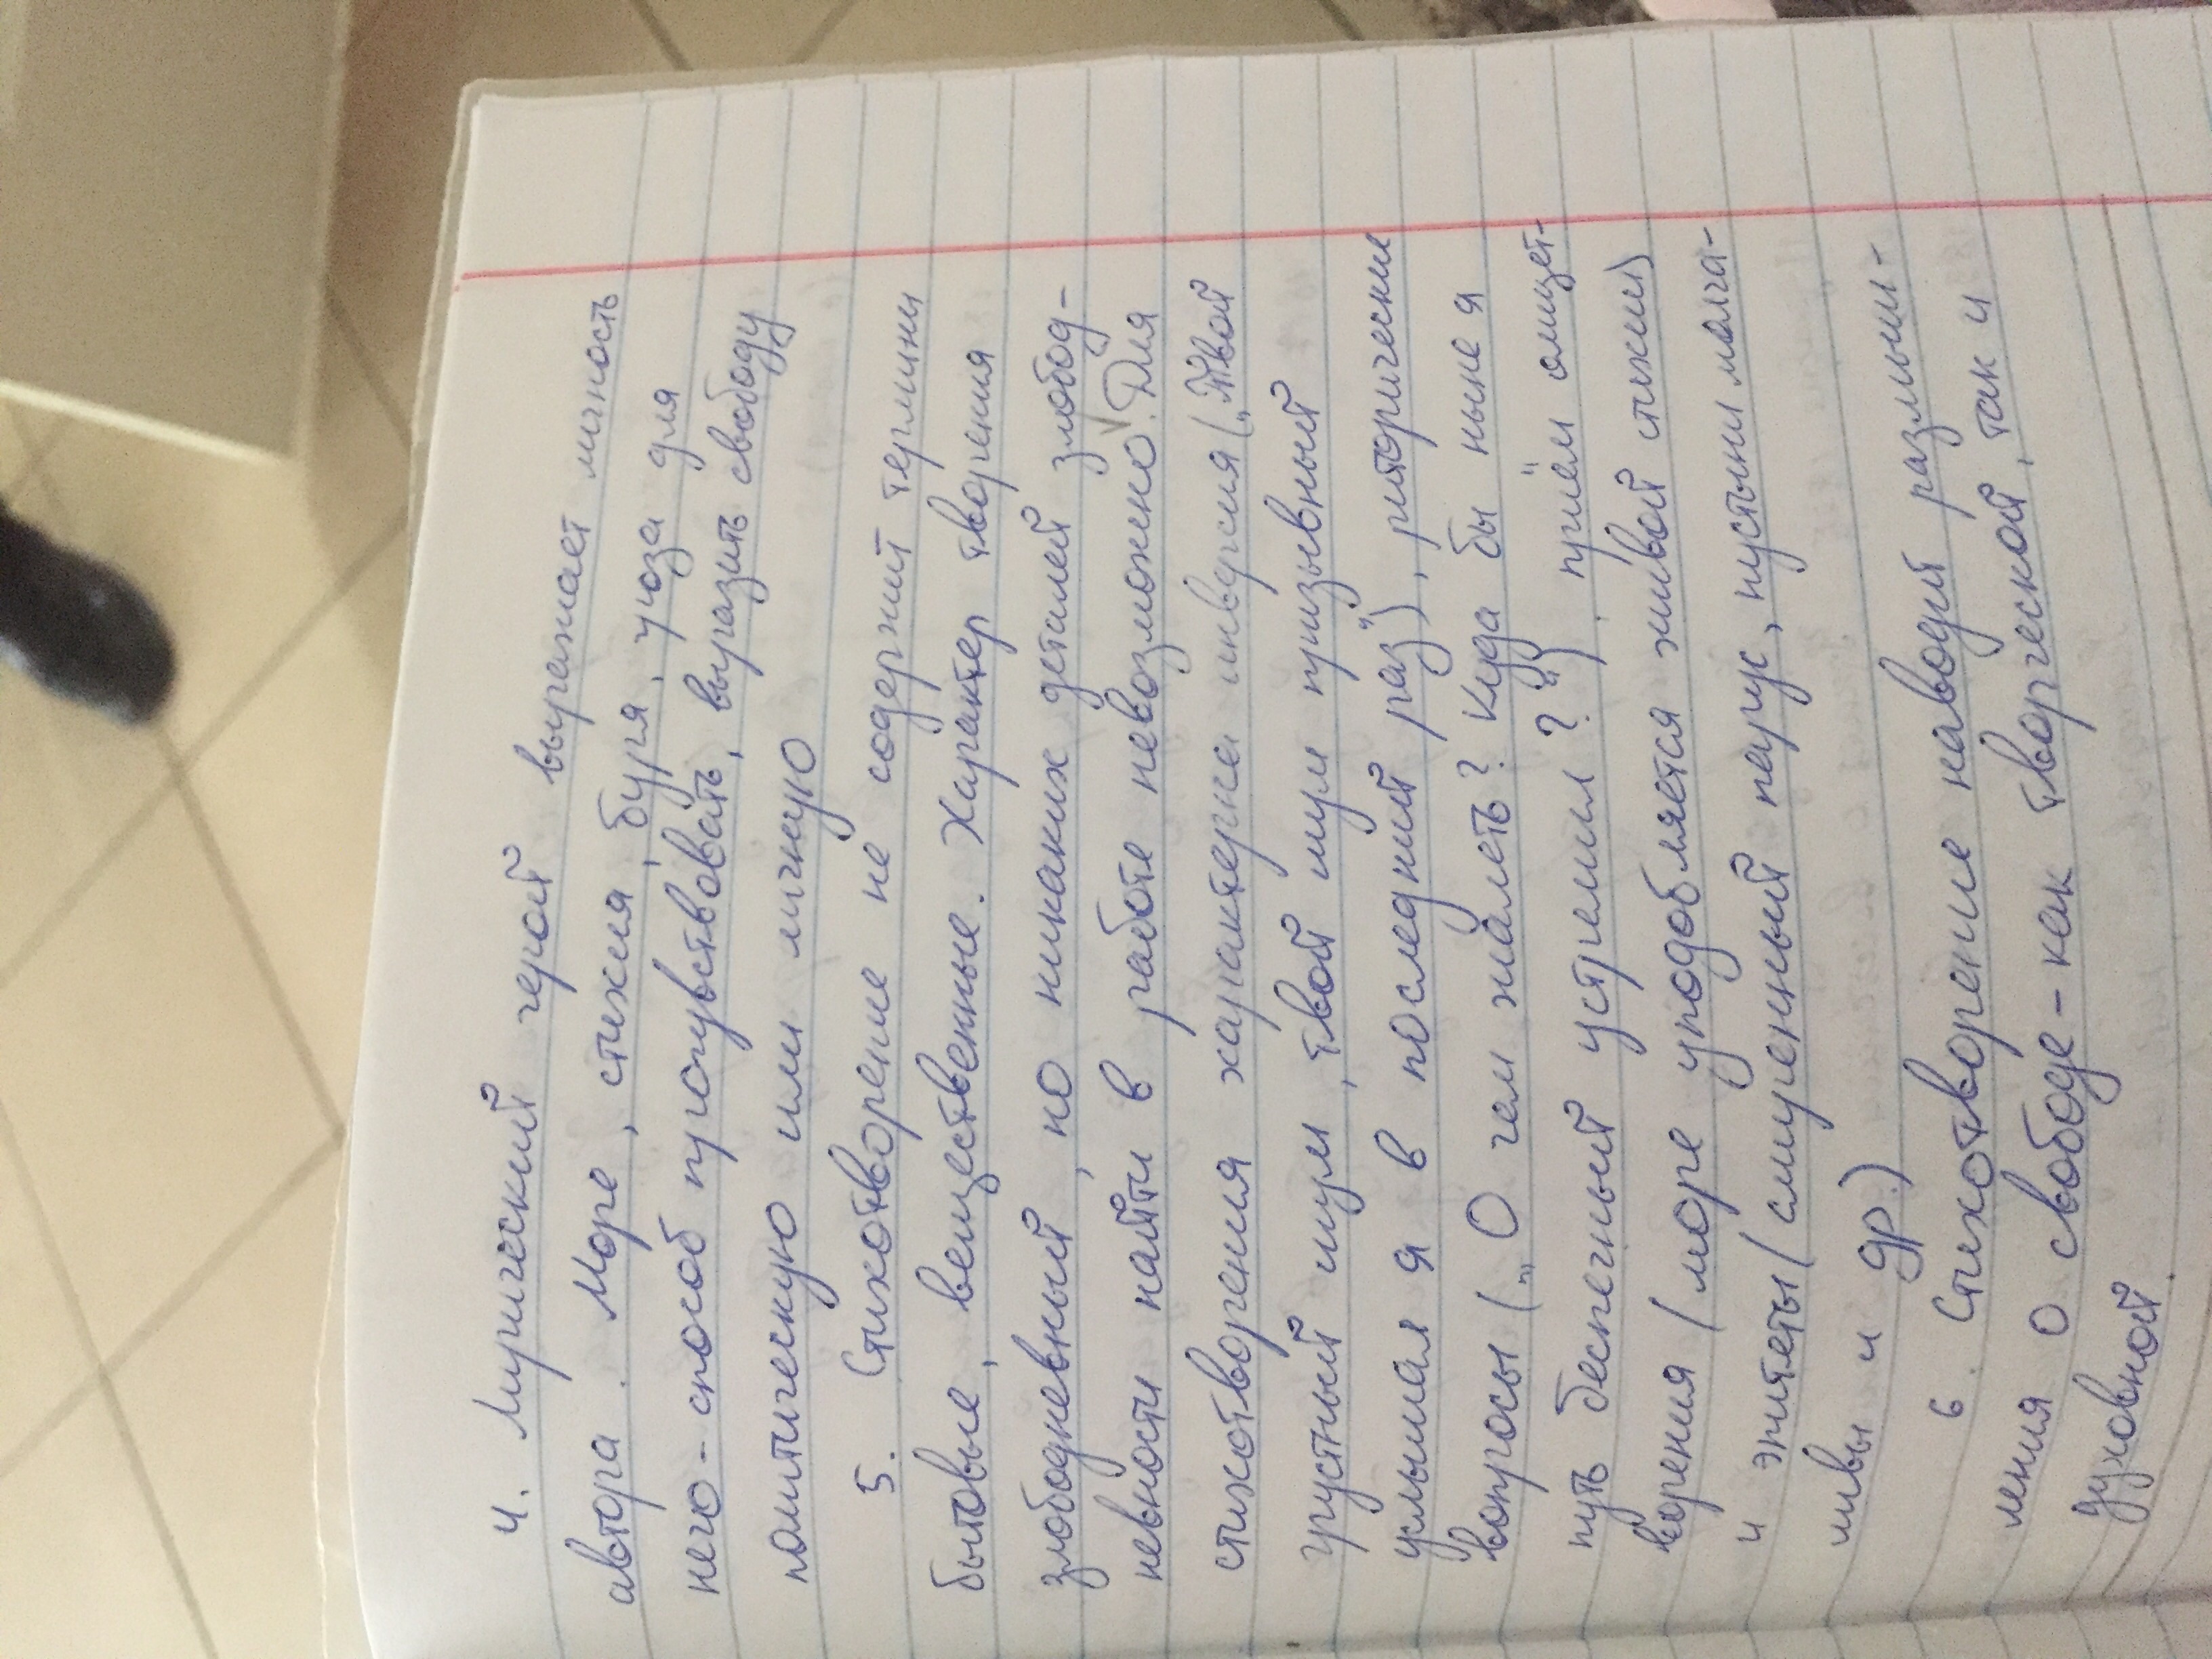 4. Лирический герой выражает личность
автора. Море, стихия, буря, гроза для
него - способ прочувствовать, выразить свободу
политическую или личную
5. Стихотворение не содержит термины
бытовые, вещественные. Характер творения
злободневный, но никаких деталей злобод-
невности найти в работе невозможно. Для
стихотворения характерна инверсия („Твой
грустный шум, твой шум призывный
услышал я в последний раз"), риторические
вопросы („О чем жалеть? Куда бы ныне я
путь беспечный устремил?"), приём олицет-
ворения (море уподобляется живой стихии)
и эпитеты (смиренный парус, пустыни молча-
ливы и др.)
6. Стихотворение наводит размыш-
ления о свободе - как творческой, так и
духовной.